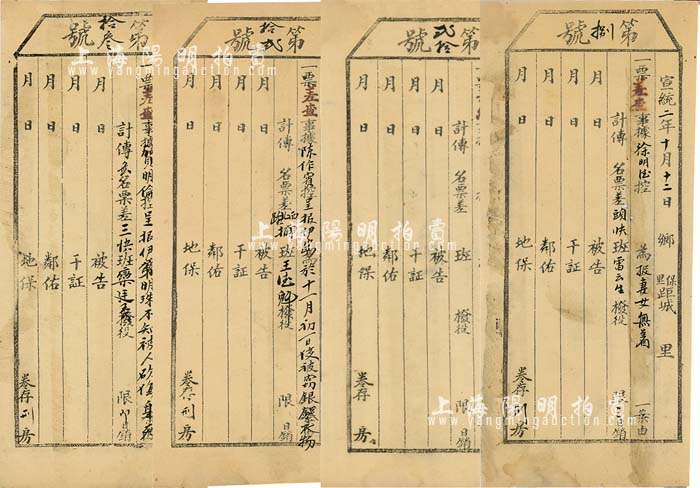 第捌號
宣統二年十月十二日 鄉 保 里 距城 里
一票差查事據徐明德控 為報妻女無着 一案由
計傳 名票差頭快班雷云生 撥役 限 日銷
月 日 被告
月 日 干証
月 日 鄰佑
月 日 地保
卷存刑房
第貳拾號
計傳 名票差 班 撥役 限 日銷
月 日 被告
月 日 干証
月 日 鄰佑
月 日 地保
卷存刑房
第拾貳號
一票差查事據陳作賓控呈報 於十一月初一日夜被竊銀 衣物
計傳 名票差 捕班王 撥役 限 日銷
月 日 被告
月 日 干証
月 日 鄰佑
月 日 地保
卷存刑房
第拾叁號
一票差查事據賀明倫控呈報伊 明珠不知被人砍傷身死
計傳 名票差三快班 撥役 限 日銷
月 日 被告
月 日 干証
月 日 鄰佑
月 日 地保
卷存刑房
上海陽明拍賣
www.yangmingauction.com